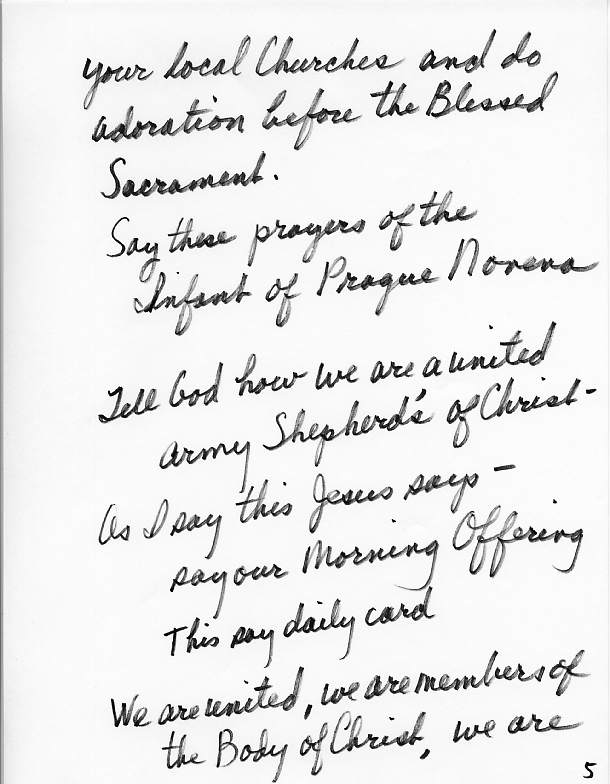 your local Churches and do
adoration before the Blessed
Sacrament.
Say these prayers of the
Infant of Prague Novena
Tell God how we are a united
army Shepherd's of Christ-
As I say this Jesus says -
say our Morning Offering
This say daily card
We are united, we are members of
the Body of Christ, we are
5